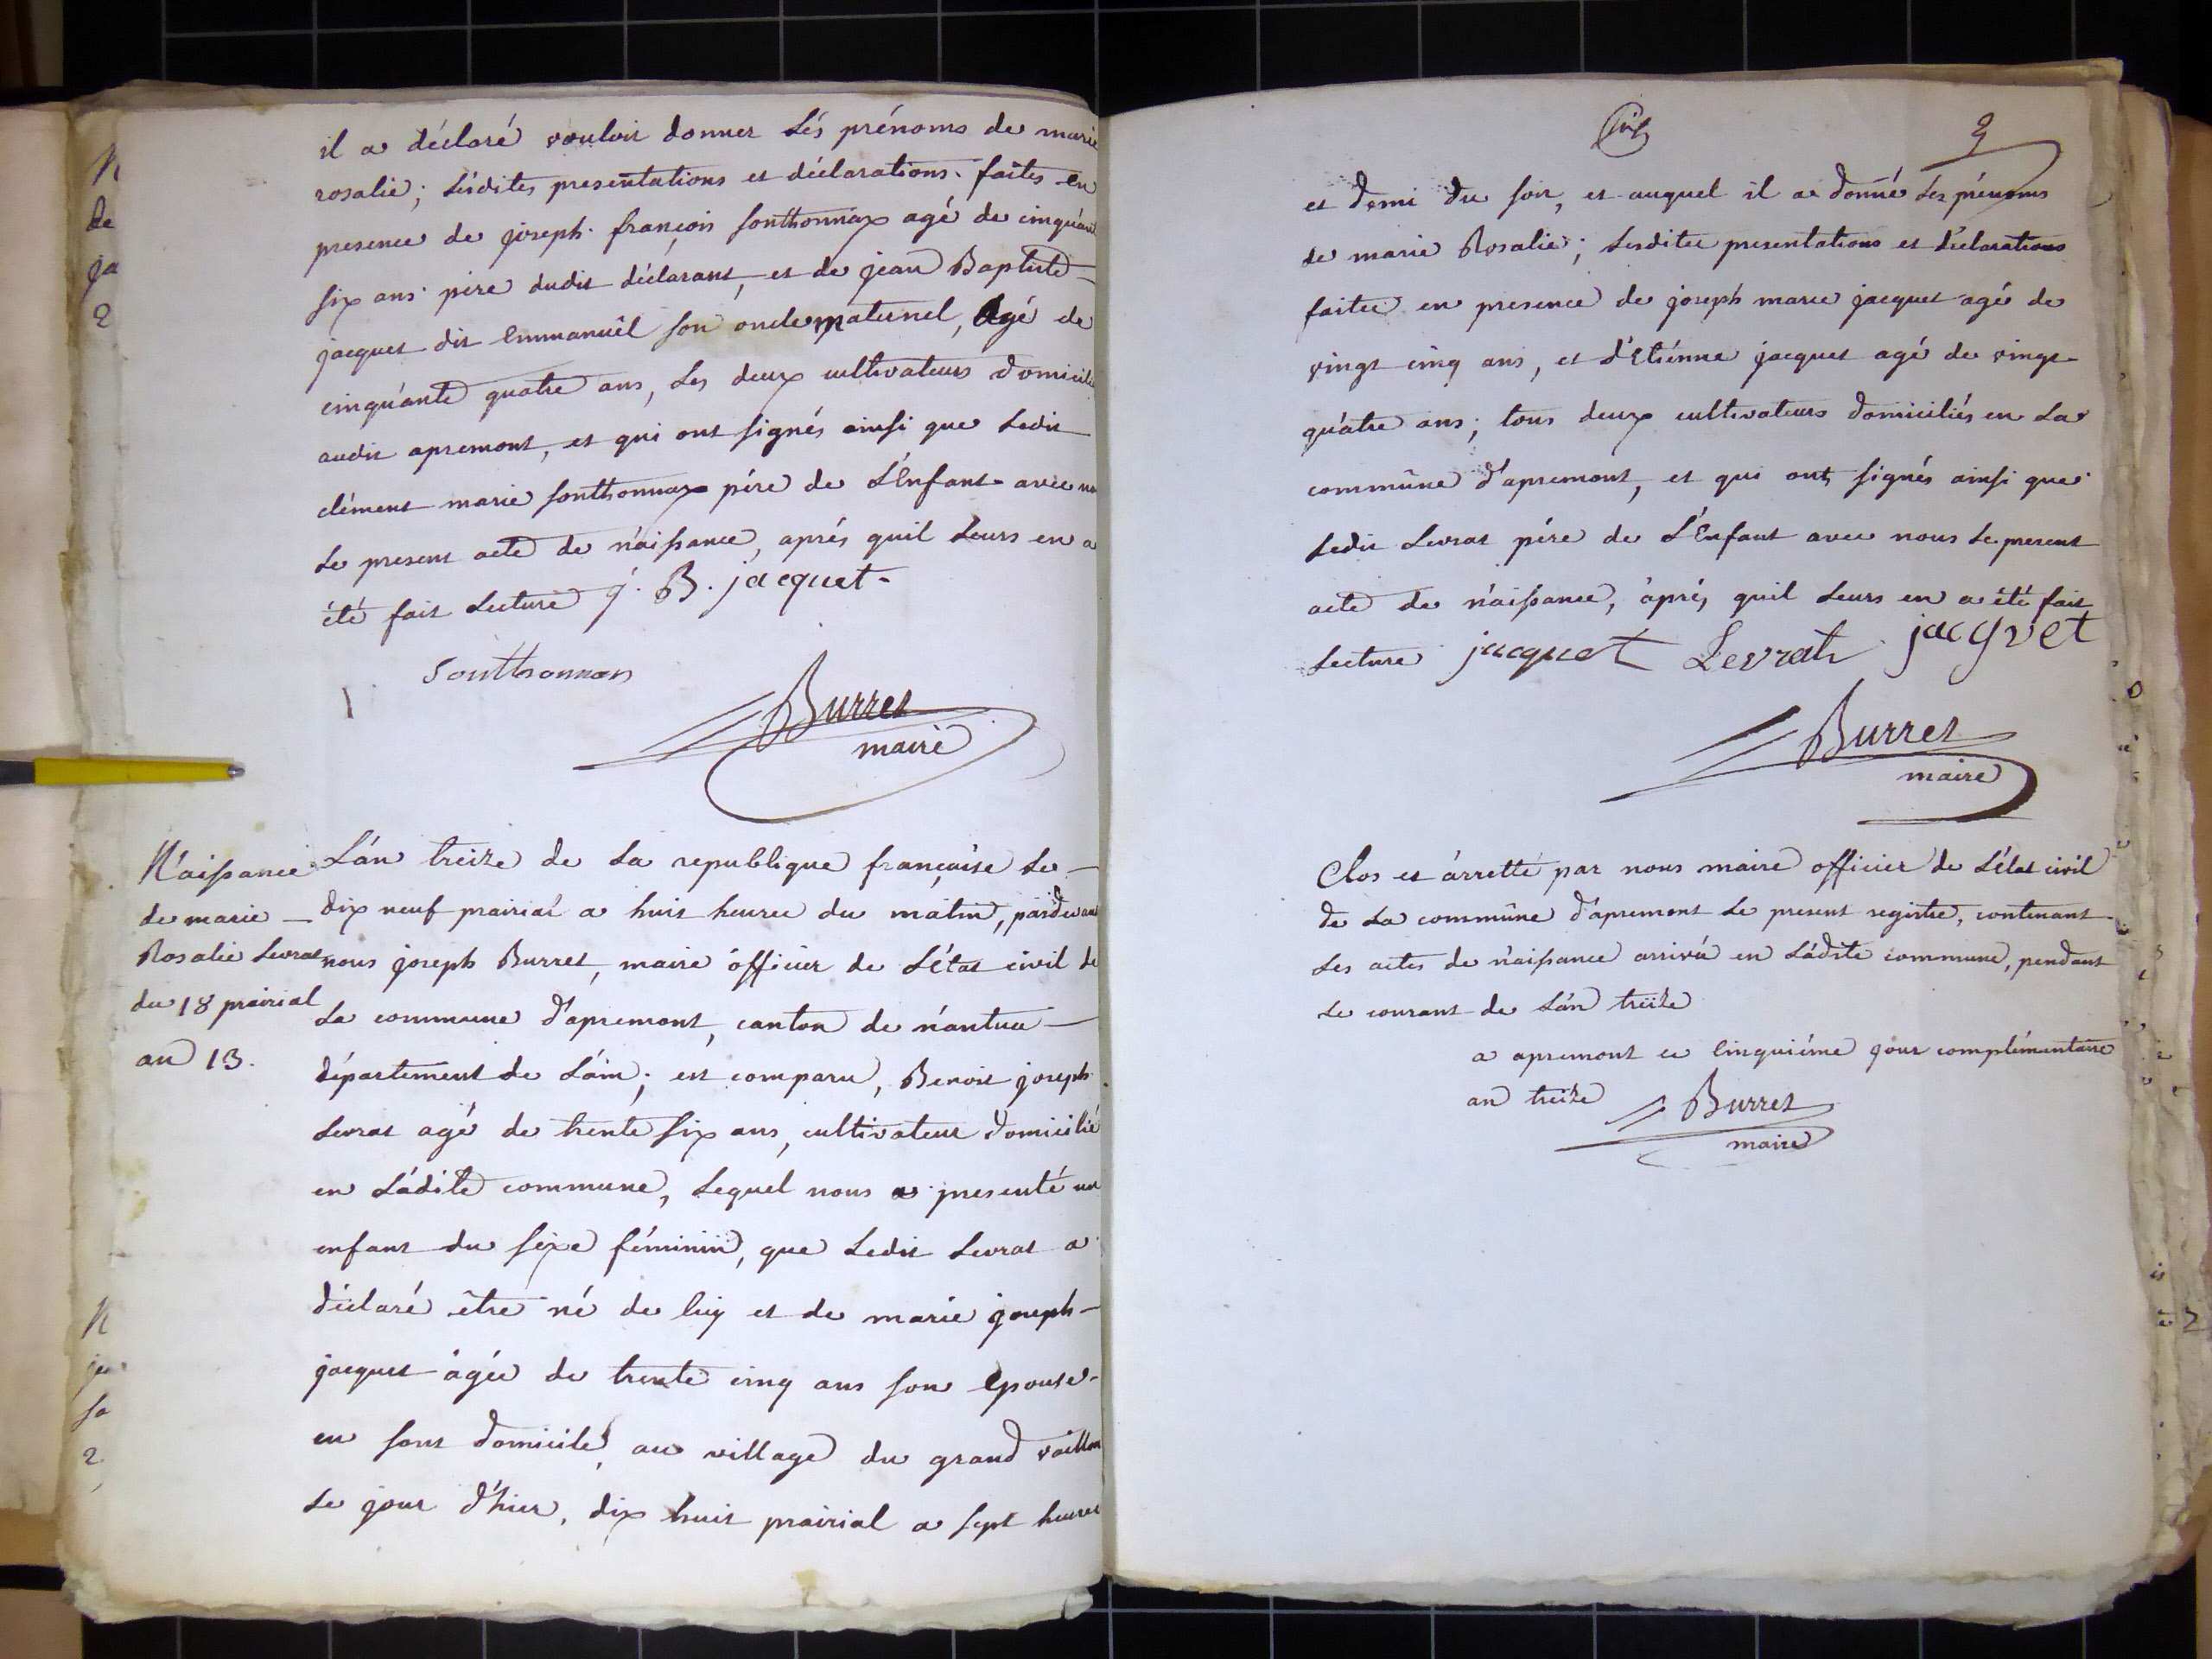 il a déclaré vouloir donner Lés prénoms de marie
rosalie; Lésdites presentations et déclarations faites en
presence de joseph françois sonthonnax agé de cinquante
six ans père dudit déclarant, et de jean Baptiste
jacquet dit Emmanuël son oncle maternel, Agé de
cinquante quatre ans, Les deux cultivateurs domiciliés
audit apremont, et qui ont signés ainsi que Ledit
clément marie sonthonnax pére de L'Enfant avec nous
Le present acte de naissance, aprés quil Leurs en a
été fait Lecture j. B. jacquet
Sonthonnax
Burret
maire
Naissance
de marie
Rosalie Levrat
du 18 prairial
an 13.
Lán treize de La republique française Le
dix neuf prairial a huit heures du matin, pardevant
nous joseph Burret, maire officier de L'état civil de
La commune d'apremont, canton de nantua
département de L'ain; est comparu, Benoit joseph
Levrat agé de trente six ans, cultivateur domicilié
en Ládite commune, Lequel nous a presenté un
enfant du sexe féminin, que Ledit Levrat a
déclaré être né de luy et de marie joseph
jacquet agée de trente cinq ans son Epouse
en sont domicile, au village du grand vaillon
Le jour d'hier, dix huit prairial a sept heures
9
et demi du soir, et auquel il a donné Les prénoms
de marie Rosalie; Lesdites presentations et déclarations
faites en presence de joseph marie jacquet agé de
vingt cinq ans, et d'Etiénne jacquet agé de vingt
quátre ans; tous deux cultivateurs domiciliés en La
commune d'apremont, et qui ont signés ainsi que
Ledit Levrat pére de L'Enfant avec nous Le present
acte de naissance, aprés quil Leurs en a été fait
Lecture jacquet Levrat jacquet
Burret
maire
Clos et árretté par nous maire officier de L'état civil
de La commune d'apremont Le present registre, contenant
Les actes de naissance arrivés en Ládite commune, pendant
Le courant de Lán treize
a apremont ce Cinquiéme jour complémentaire
an treize Burret
maire